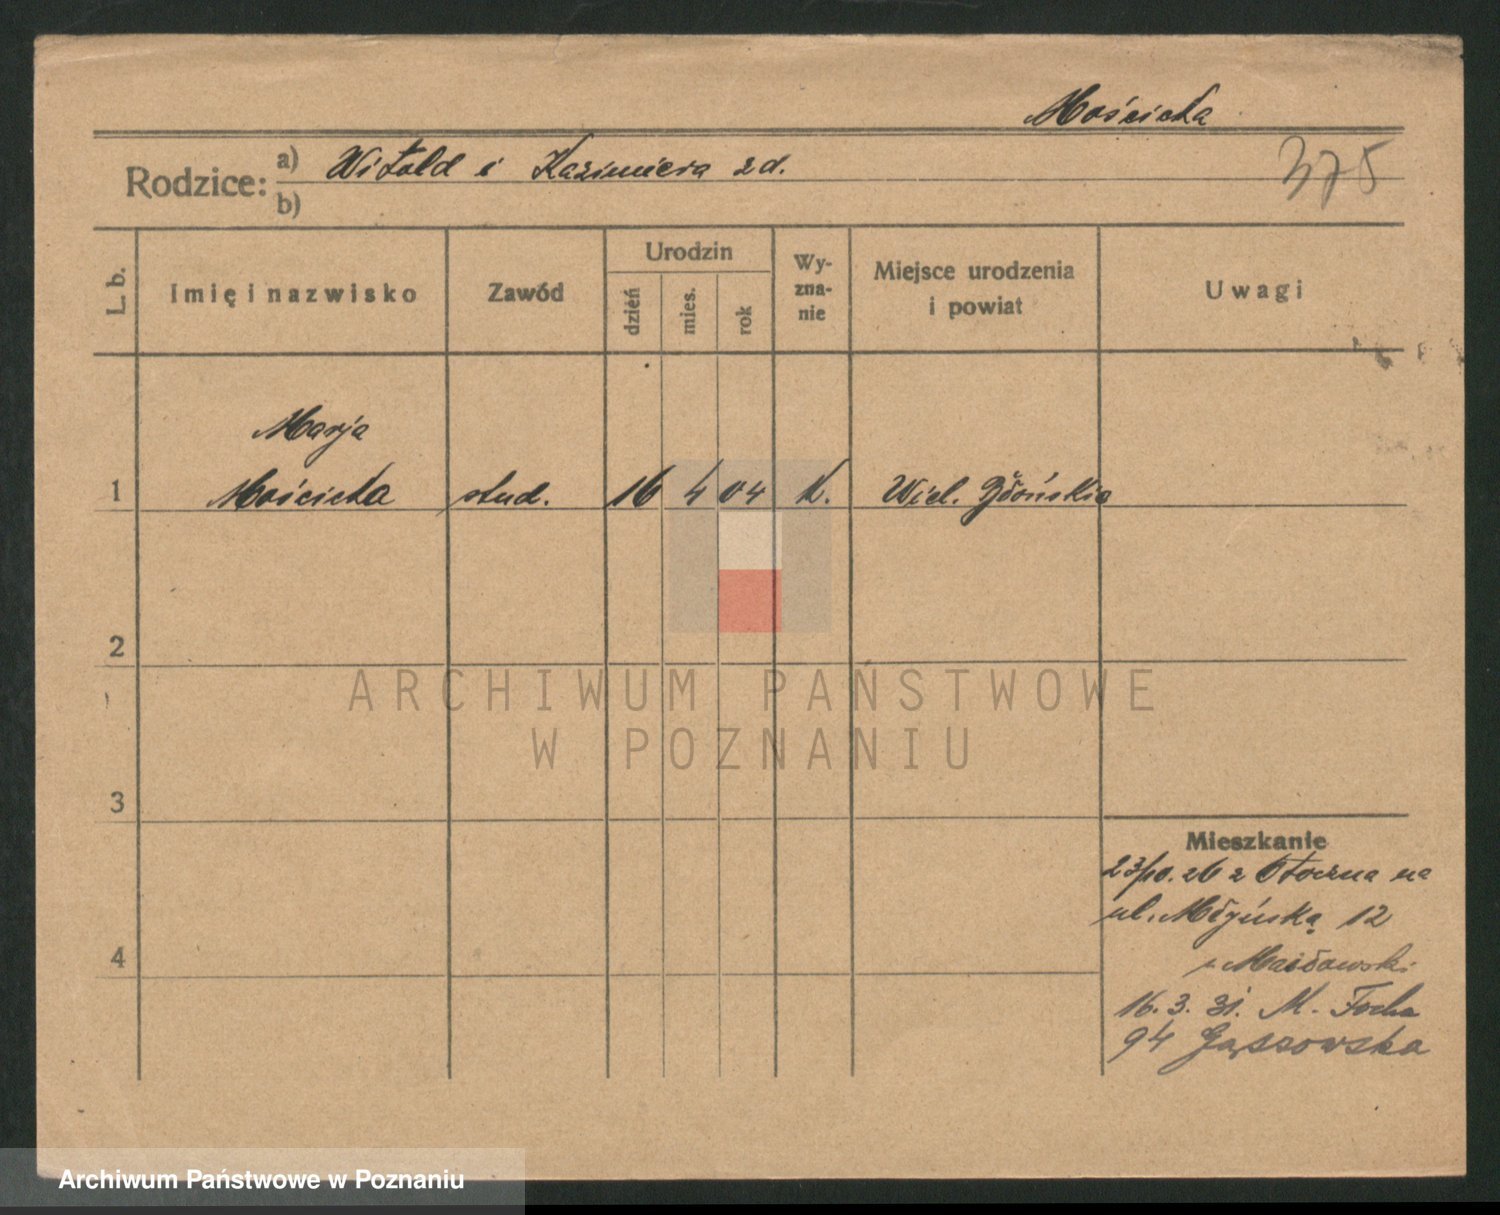 Mościcka
375
Rodzice: a) Witold i Kazimiera z d.
b)
L. b.
Imię i nazwisko
Zawód
Urodzin
dzień
mies.
rok
Wy-
zna-
nie
Miejsce urodzenia
i powiat
Uwagi
Marja
1 Mościcka stud. 16 4 04 K. Wiel.
2
3
4
Mieszkanie
23/10. 26 z Otoczna na
ul. Młyńską 12
16. 3. 31. M. Focha
94 Gąszowska
ARCHIWUM PAŃSTWOWE
W POZNANIU
Archiwum Państwowe w Poznaniu